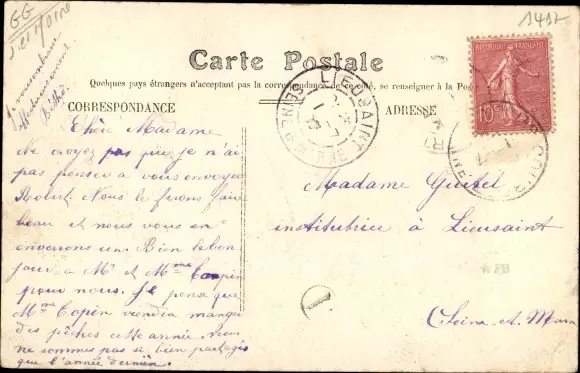 GG
1417
Carte Postale
Quelques pays étrangers n'acceptant pas la correspondance de ce côté, se renseigner à la Pos
CORRESPONDANCE
ADRESSE
RÉPUBLIQUE FRANÇAISE
10
LIEUSAINT
SEINE-ET-MARNE
Chère Madame
Ne croyez pas que je n'ai
pas pensée a vous envoyer
Robert. Nous le ferons faire
beau et nous vous en
enverrons un. Bien le bon
jour a Mr et Mme Copin
pour nous. Je pense que
Mme Copin viendra manger
des pêches cette année. Nous
ne sommes pas si bien partagés
que l'année dernière.
Madame Guitel
institutrice à Lieusaint
Seine-et-Marn
1
FB